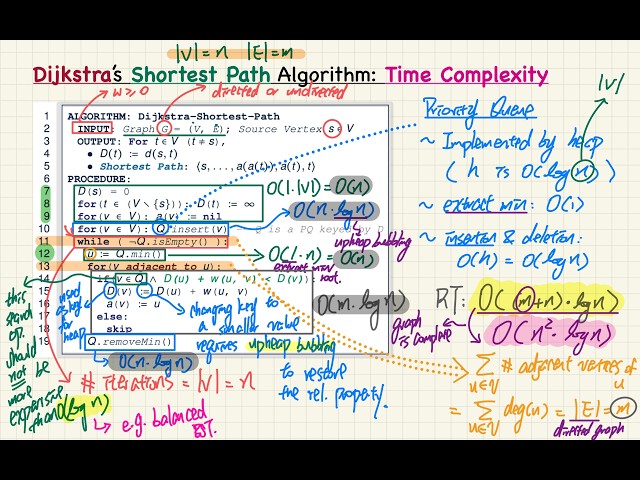 |V| = n |E| = m
Dijkstra's Shortest Path Algorithm: Time Complexity
w ≥ 0
directed or undirected
|V|
1 ALGORITHM: Dijkstra-Shortest-Path
2 INPUT: Graph G = (V, E); Source Vertex s ∈ V
3 OUTPUT: For t ∈ V (t ≠ s),
4 • D(t) := d(s, t)
5 • Shortest Path: ⟨s, ..., a(a(t)), a(t), t⟩
6 PROCEDURE:
7 D(s) = 0
8 for(t ∈ (V \ {s})): D(t) := ∞
9 for(v ∈ V): a(v) := nil
10 for(v ∈ V): Q.insert(v)
11 while (¬Q.isEmpty()
12 u := Q.min()
13 for(v adjacent to u):
14 if v ∈ Q ∧ D(u) + w(u, v) < D(v):
15 D(v) := D(u) + w(u, v)
16 a(v) := u
17 else:
18 skip
19 Q.removeMin()
O(1·|V|) = O(n)
O(n·log n)
upheap bubbling
O(1·n) = O(n)
extract min
root.
O(m·log n)
changing key to
a smaller value
requires upheap bubbling
to restore
the rel. property.
O(n·log n)
# iterations = |V| = n
used as key for heap
this
search
op.
should
not be
more
expensive
than O(log n)
e.g. balanced
BST.
Priority Queue
~ Implemented by heap
(h is O(log n))
~ extract min: O(1)
~ insertion & deletion:
O(h) = O(log n)
RT: O((m+n)·log n)
graph
is complete
O(n²·log n)
∑ u∈V # adjacent vertices of u
= ∑ u∈V deg(u) = |E| = m
directed graph